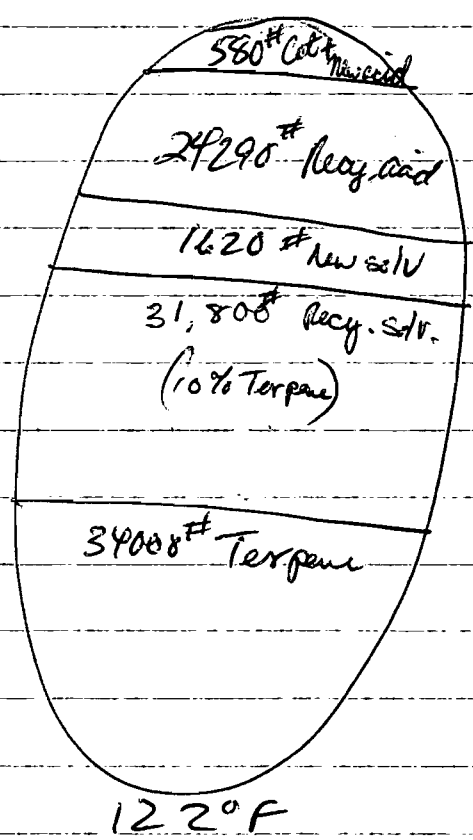 580# Cat + New acid
24290# Recy. acid
1620# New solv
31,800# Recy. Solv.
(10% Terpene)
34000# Terpene
122°F